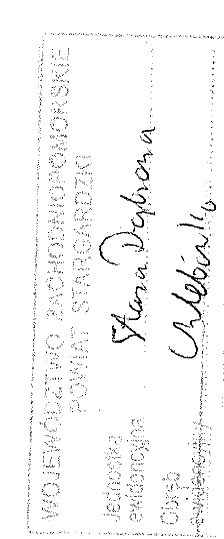 WOJEWÓDZTWO ZACHODNIOPOMORSKIE
POWIAT STARGARDZKI
Jednostka
ewidencyjna Stara Dąbrowa
Obręb
ewidencyjny Chlebówko